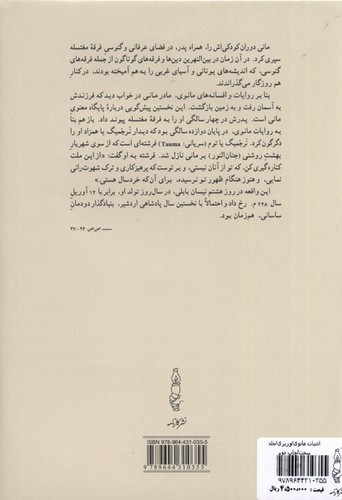 مانی دوران کودکی‌اش را، همراه پدر، در فضای عرفانی و گنوسی فرقهٔ مغتسله
سپری کرد. در آن زمان در بین‌النهرین دین‌ها و فرقه‌های گوناگون از جمله فرقه‌های
گنوسی، که اندیشه‌های یونانی و آسیای غربی را به هم آمیخته بودند، در کنار
هم روزگار می‌گذراندند.
بنا بر روایات و افسانه‌های مانوی، مادر مانی در خواب دید که فرزندش
به آسمان رفت و به زمین بازگشت. این نخستین پیش‌گویی دربارهٔ پایگاه معنوی
مانی است. پدرش در چهار سالگی او را به فرقهٔ مغتسله پیوند داد. باز هم بنا
به روایات مانوی، در پایان دوازده سالگی بود که دیدار نرجمیگ یا همزاد او را
دگرگون کرد. نرجمیگ یا توم (سریانی: Tauma) فرشته‌ای است که از سوی شهریار
بهشت روشنی (جنان‌النور) بر مانی نازل شد. فرشته به او گفت: «از این ملت
کناره‌گیری کن، که تو از آنان نیستی، و بر توست که پرهیزکاری و ترک شهوت‌رانی
نمایی، و هنوز هنگام ظهور تو نرسیده، برای آن که خردسال هستی.»
این واقعه در روز هشتم نیسان بابلی، در سال‌روز تولد او، برابر با ۱۲ آوریل
سال ۲۲۸ م. رخ داد و احتمالاً با نخستین سال پادشاهی اردشیر، بنیادگذار دودمان
ساسانی، هم‌زمان بود.
— صص ۲۶-۲۷
نشر کارنامه
ISBN 978-964-431-035-5
9789644310355
ادبیات مانوی/وزیری/جلد
سخت/چاپ دوم
۹۷۸۹۶۴۴۳۱۰۳۵۵
قیمت: ۴،۵۰۰،۰۰۰ ریال